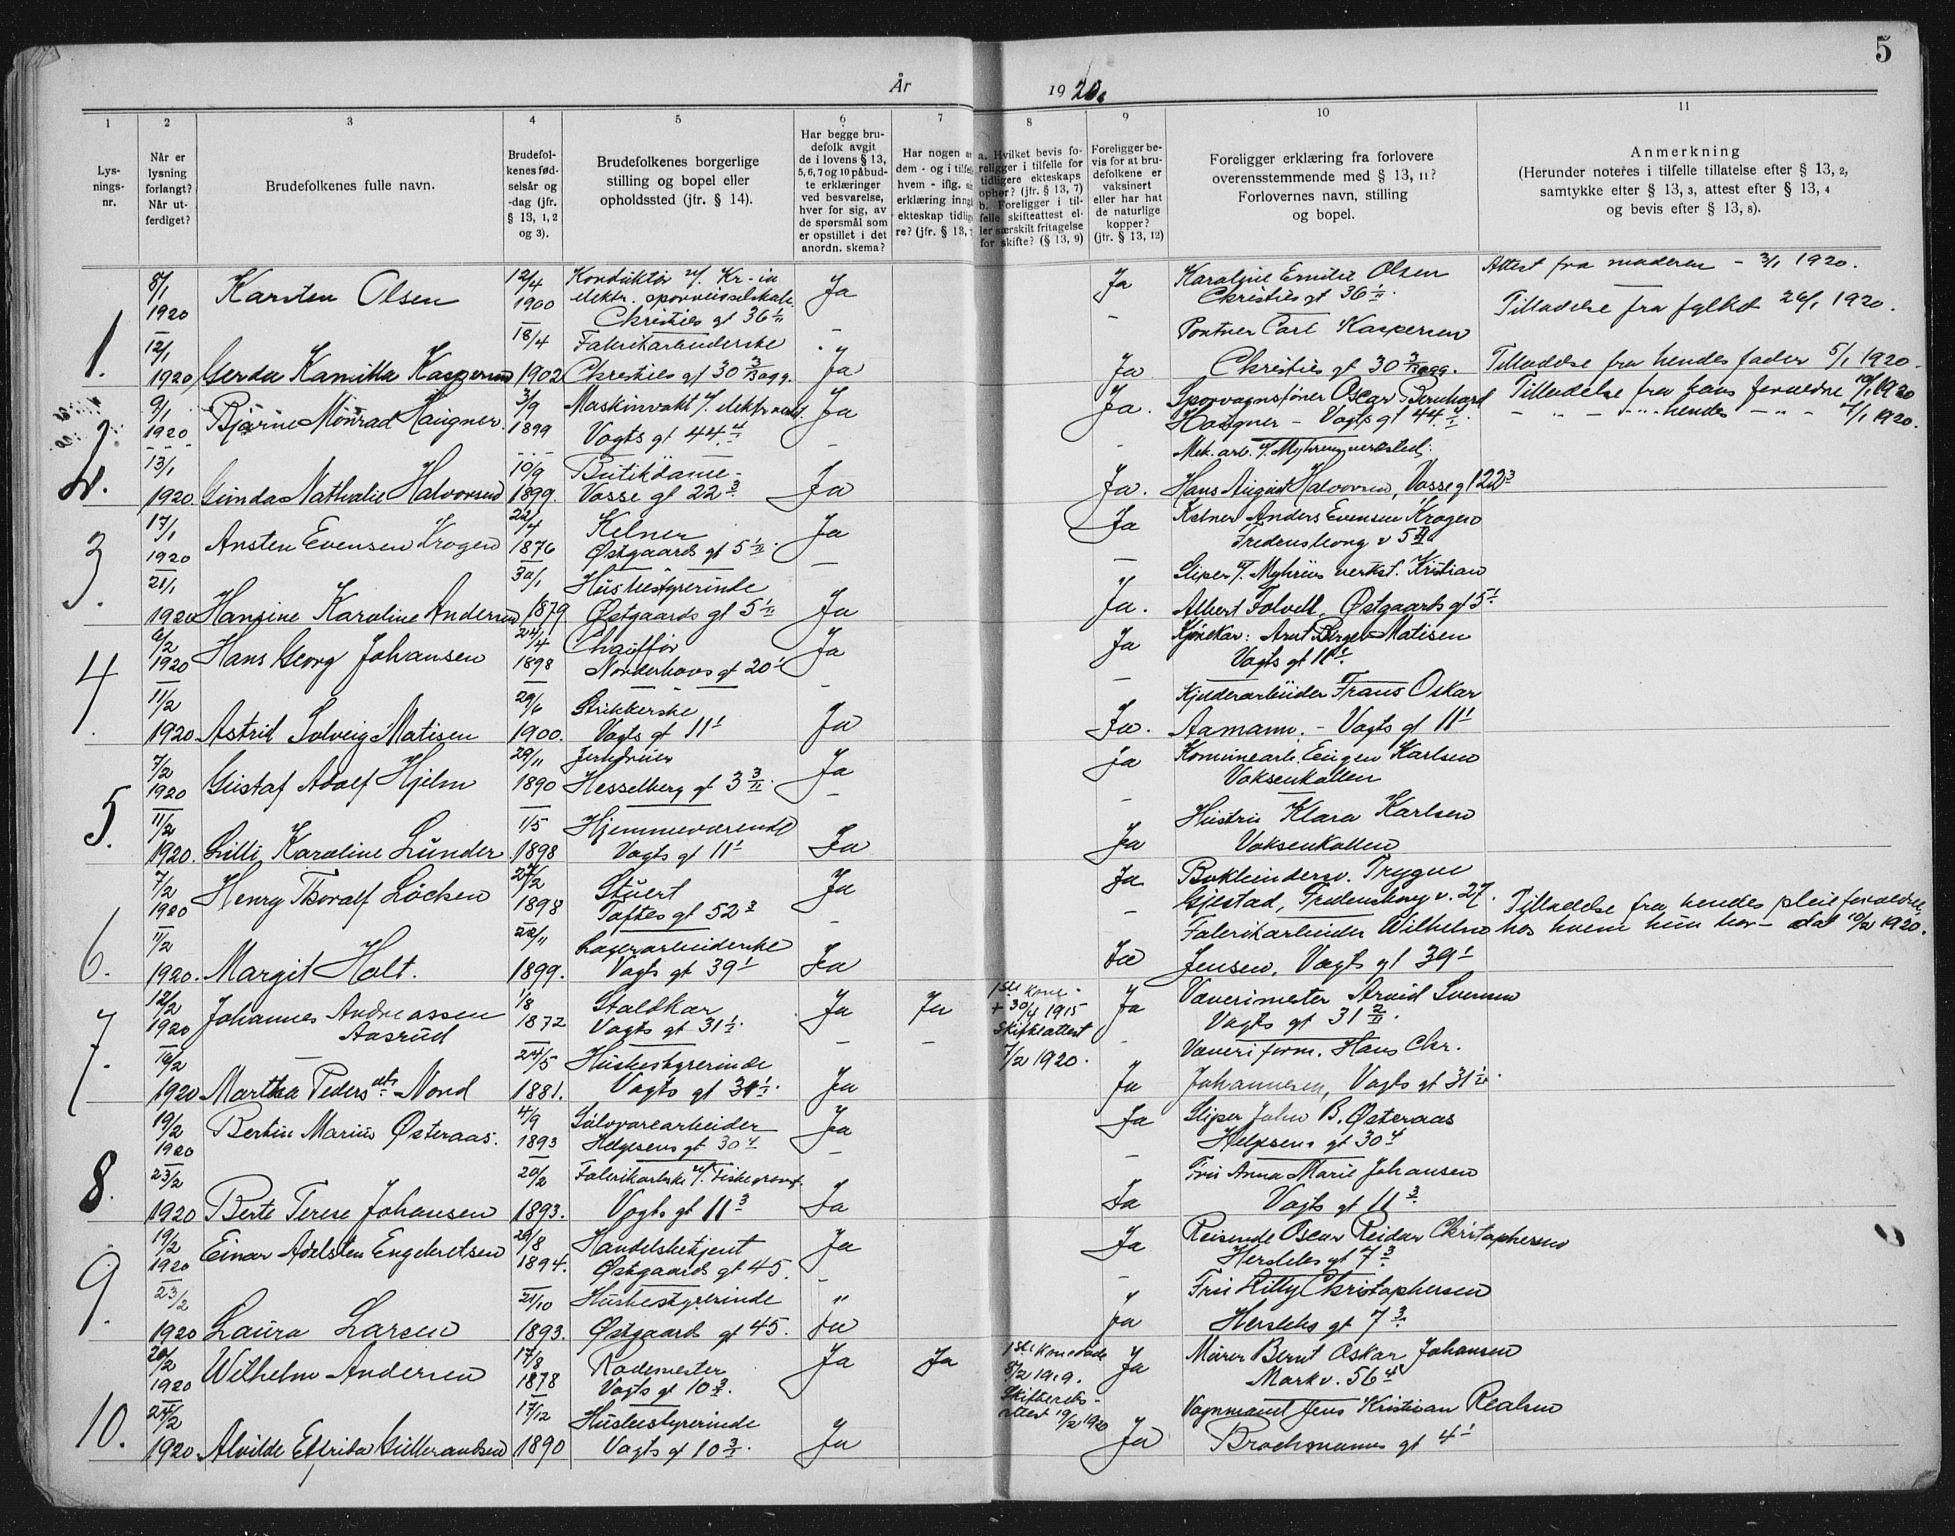 5
År 1920.
1 2 3 4 5 6 7 8 9 10 11
Lys-
nings-
nr.
Når er
lysning
forlangt?
Når ut-
ferdiget?
Brudefolkenes fulle navn.
Brudefol-
kenes fød-
selsår og
-dag (jfr.
§ 13, 1, 2
og 3).
Brudefolkenes borgerlige
stilling og bopel eller
opholdssted (jfr. § 14).
Har begge bru-
defolk avgit
de i lovens § 13,
5, 6, 7 og 10 påbud-
te erklæringer
ved besvarelse,
hver for sig, av
de spørsmål som
er opstillet i det
anordn. skema?
Har nogen
dem - og i tilfelle
hvem - iflg.
erklæring inng
ekteskap tidlige
re? (jfr. § 13,
a. Hvilket bevis fo-
religger i tilfelle for
tidligere ekteskaps
ophør? (jfr. § 13, 7)
b. Foreligger i til-
felle skifteattest el-
ler særskilt fritagelse
for skifte? (§ 13, 9)
Foreligger be-
vis for at bru-
defolkene er
vaksinert
eller har hat
de naturlige
kopper?
(jfr. § 13, 12)
Foreligger erklæring fra forlovere
overensstemmende med § 13, 11?
Forlovernes navn, stilling
og bopel.
Anmerkning
(Herunder noteres i tilfelle tillatelse efter § 13, 2,
samtykke efter § 13, 3, attest efter § 13, 4
og bevis efter § 13, 8).
1.
8/1 1920 Karsten Olsen 12/4 1900 Konduktør v/. Kr-ia
elektr. sporveisselskab.
Christies gt 36 1/II Ja Ja Karoline Emilie Olsen
Christies gt 36 1/II.
Attest fra moderen - 3/1 1920.
Tilladelse fra fylket 26/1 1920.
12/1 1920 Gerda Kamilla Kaspersen 18/4 1902 Fabrikarbeiderske
Christies gt 30 Ja Ja Portner Carl Kaspersen
Christies gt 30
Tilladelse fra hendes fader 5/1 1920
2.
9/1 1920 Bjarne Monrad Haugner. 3/9 1899 Maskinvakt v/. elektr.
Vogts gt 44 Ja Ja. Sporvognsfører Oscar Bernhard
Haugner - Vogts gt 44
Tilladelse fra hans forældre 10/1 1920
- " - - " - hendes - " - 7/1 1920.
13/1 1920. Gunda Nathalie Halvorsen 10/9 1899. Butikdame -
Vosse gt 22 3. Ja Ja. Mek. arb. v/. Myhrens verksted:
Hans August Halvorsen, Vosse gt 22 3
3.
17/1 1920 Ansten Evensen Krogen 22/4 1876 Kelner
Østgaards gt 5 1/II. Ja Ja Kelner Anders Evensen Krogen
Fredensborg v 5
21/1 1920 Hansine Karoline Andersen 30/1 1879. Husbestyrerinde
Østgaards gt 5 1/II Ja Ja. Sliper v/. Myhrens verkst. Kristian
Albert Tolvell, Østgaards gt 5 1.
4.
6/2 1920 Hans Georg Johansen 24/4 1898 Chauffør
Norderhovs gt 20 1 Ja Ja Kjørekar: Arnt Birger Matisen
Vogts gt 11 1.
11/2 1920 Astrid Solveig Matisen 29/6 1900. Strikkerske
Vogts gt 11 1 Ja Ja. Kjelderarbeider Frans Oskar
Aamann. - Vogts gt 11 1
5.
7/2 1920 Gustaf Adolf Hjelm 29/11 1890 Jerndreier
Hesselberg gt 3 3/II. Ja Ja Komunearb. Eugen Karlsen
Voksenkollen
11/2 1920. Lilli Karoline Lunder 1/5 1898 Hjemmeværende
Vogts gt 11 1 Ja Ja Hustru Klara Karlsen
Voksenkollen
6.
7/2 1920 Henry Thoralf Løchen 27/2 1898 Stuert
Toftes gt 52 3 Ja Ja Bokbinderv. Trygve
Gjestad, Fredensborg v. 27.
11/2 1920. Margit Holt. 22/11 1899. Lagerarbeiderske
Vogts gt 39 1 Ja Ja Fabrikarbeider Wilhelm
Jensen, Vogts gt 39 1
Tilladelse fra hendes pleieforældre,
hos hvem hun bor - dat 10/2 1920.
7.
12/2 1920 Johannes Andreassen
Aasrud 1/8 1872 Staldkar
Vogts gt 31 1/2. Ja Ja 1ste kone -
+ 30/4 1915
Skifteattest
7/2 1920. Ja Værimester Arvid Svensen
Vogts gt 31 2/II.
16/2 1920 Martha Pedersdtr Nord 24/5 1881. Husbestyrerinde
Vogts gt 31 Ja Ja Væveriform. Hans Chr.
Johannesen, Vogts gt 31
8.
19/2 1920 Bertin Marius Østeraas. 4/9 1893 Sølvvarearbeider
Helgesens gt 30 4 Ja Ja Sliper John B. Østeraas
Helgesens gt 30 4
23/2 1920 Berte Terese Johansen 20/2 1893. Fabrikarbske v/.
Vogts gt 11 3 Ja Ja Fru Anna Marie Johansen
Vogts gt 11 3.
9.
19/2 1920 Einar Adelsten Engebretsen 29/8 1894. Handelsbetjent
Østgaards gt 45. Ja Ja Reisende Oscar Reidar Christophersen
Herslebs gt 7 3.
23/2 1920 Laura Larsen 21/10 1893. Husbestyrerinde
Østgaards gt 45. Ja Ja Fru Lilly Christophersen
Herslebs gt 7 3.
10.
20/2 1920 Wilhelm Andersen 17/8 1878 Rodemester
Vogts gt 10 Ja Ja 1ste kone døde
5/2 1919.
Skifterets-
attest 19/2 1920 Ja Murer Bernt Oskar Johansen
Markv. 56 4
24/2 1920. Alvilde Elfrida Gulbrandsen 17/12 1890 Husbestyrerinde
Vogts gt 10 Ja Ja Vognmand Jens Kristian Realsen
Brochmanns gt 4 1